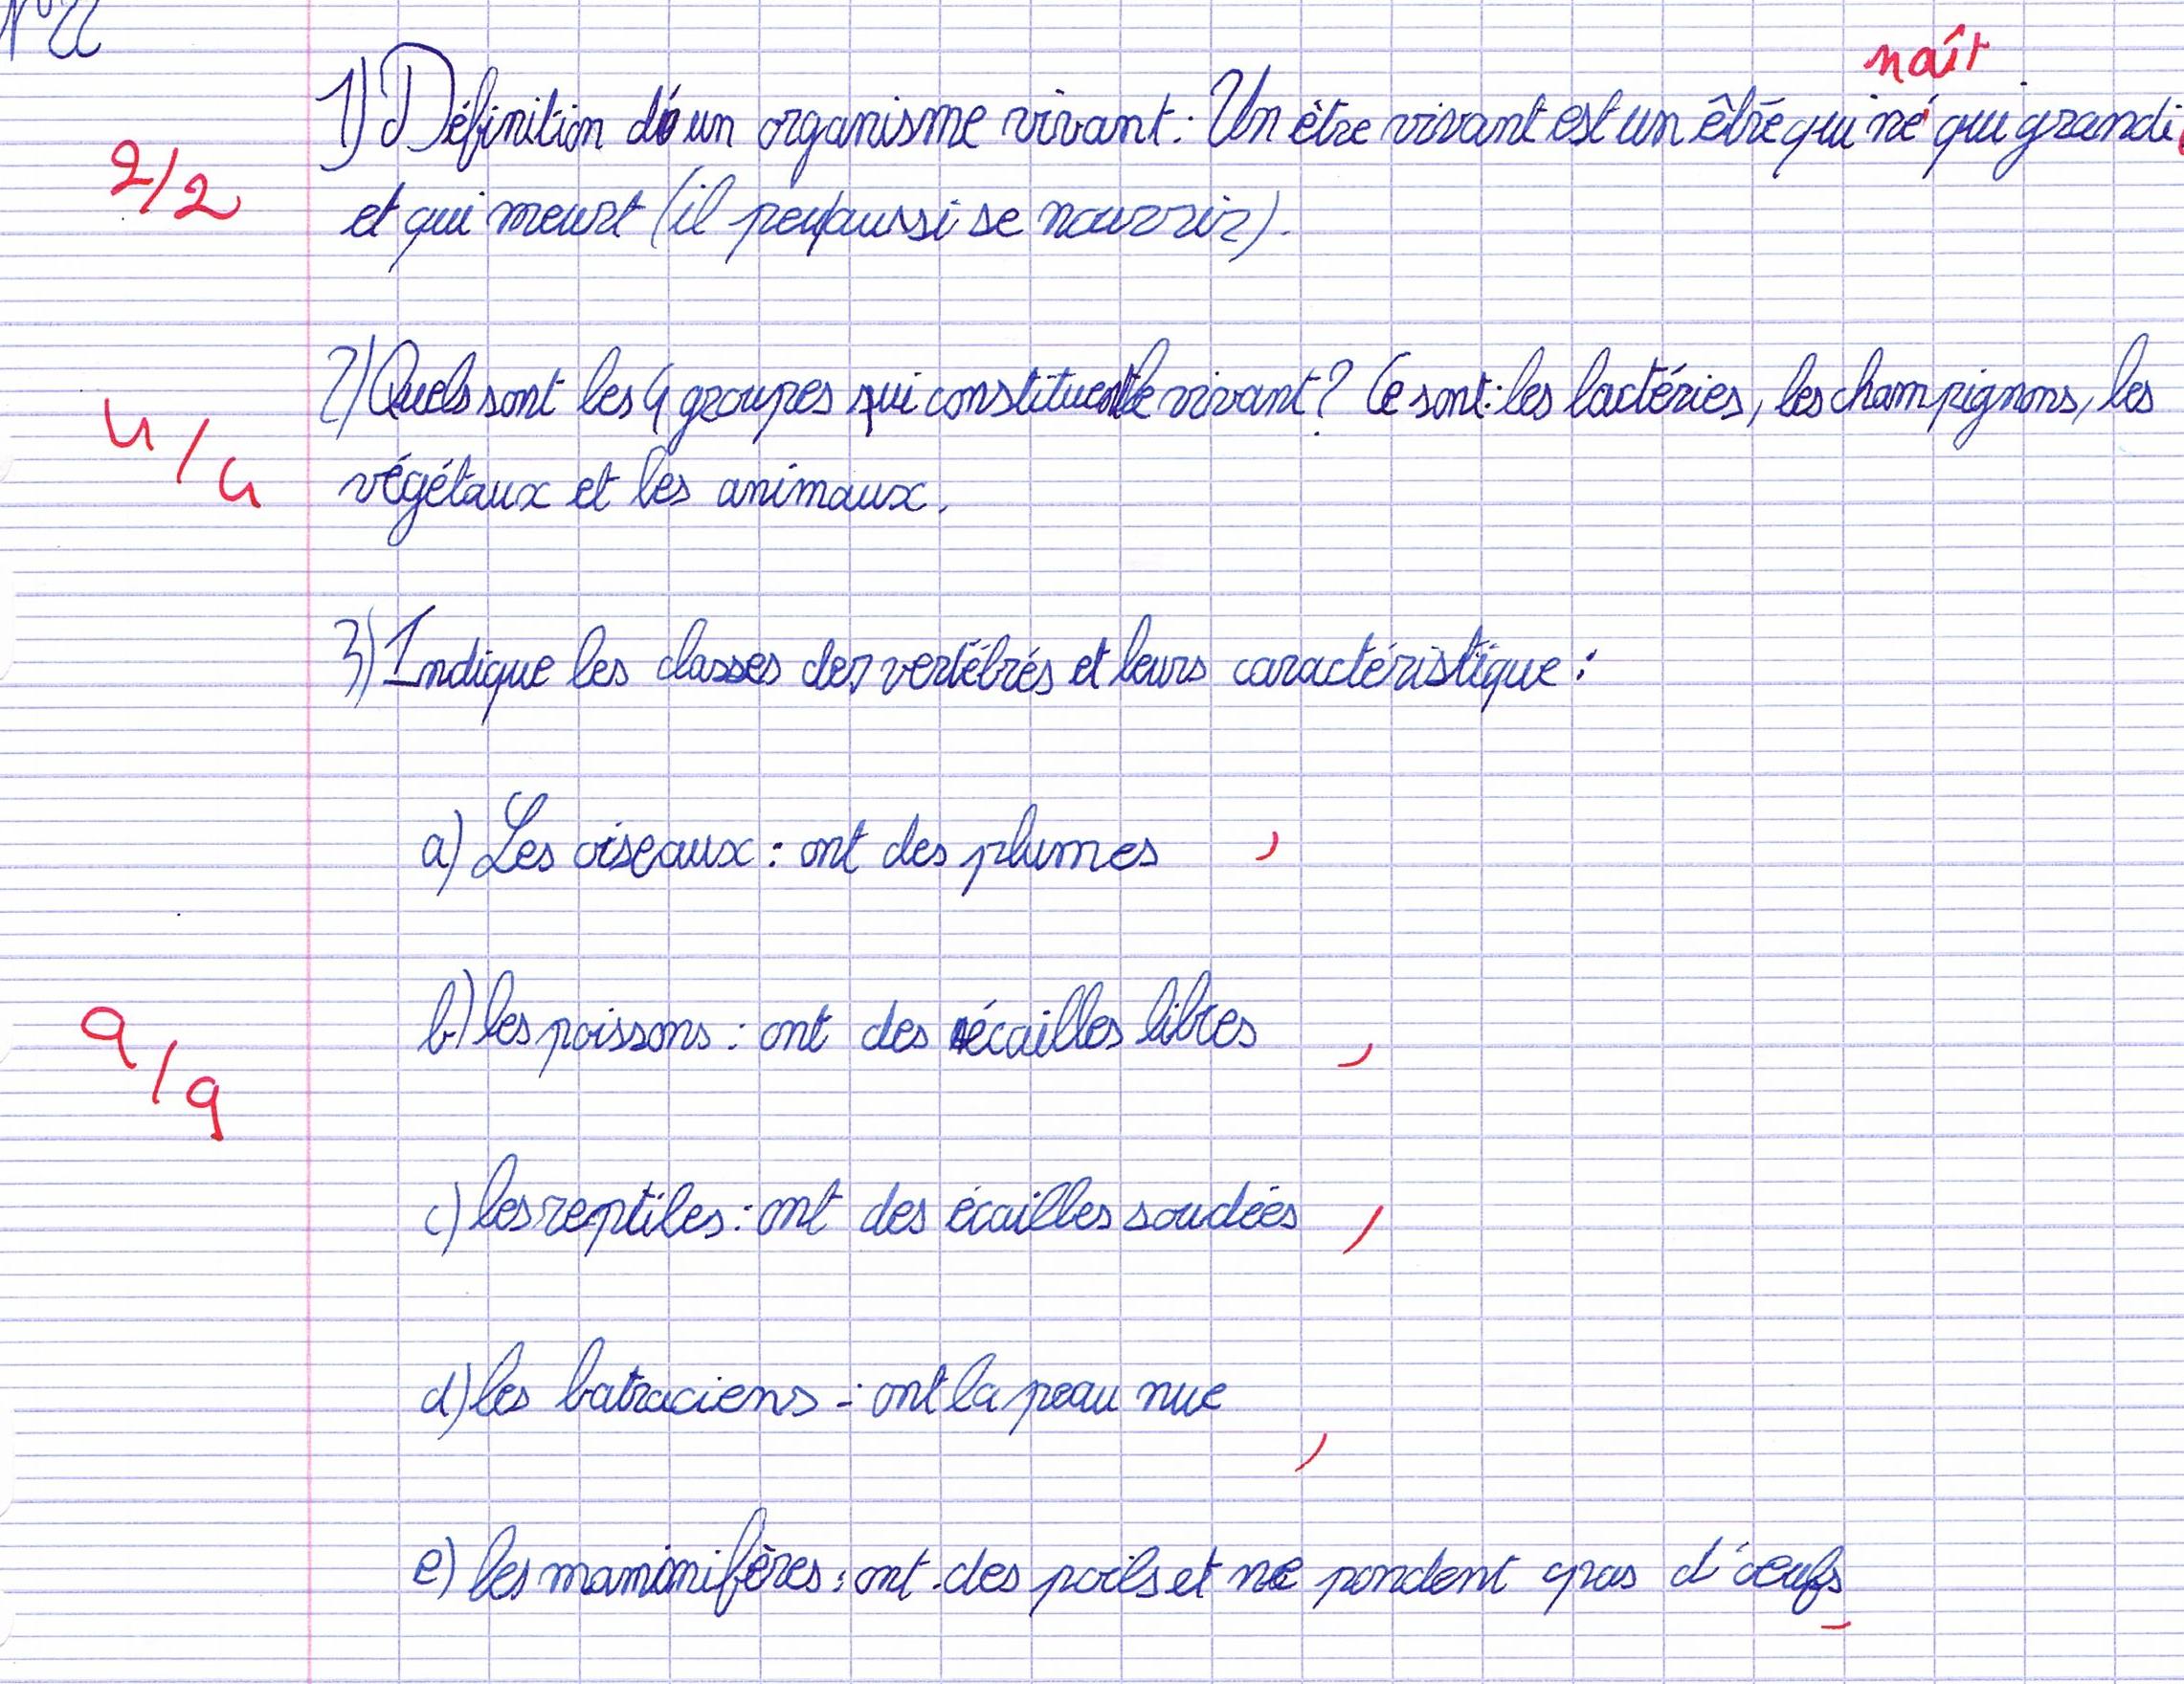 naît
1) Définition d'un organisme vivant : Un être vivant est un être qui né qui grandi
2/2
et qui meurt (il peut aussi se nourrir).
2) Quels sont les 4 groupes qui constituent le vivant ? Ce sont : les bactéries, les champignons, les
4/4
végétaux et les animaux.
3) Indique les classes des vertébrés et leurs caractéristique :
a) Les oiseaux : ont des plumes
b) les poissons : ont des écailles libres
9/9
c) les reptiles : ont des écailles soudées
d) les batraciens : ont la peau nue
e) les mammifères : ont des poils et ne pondent pas d'œufs